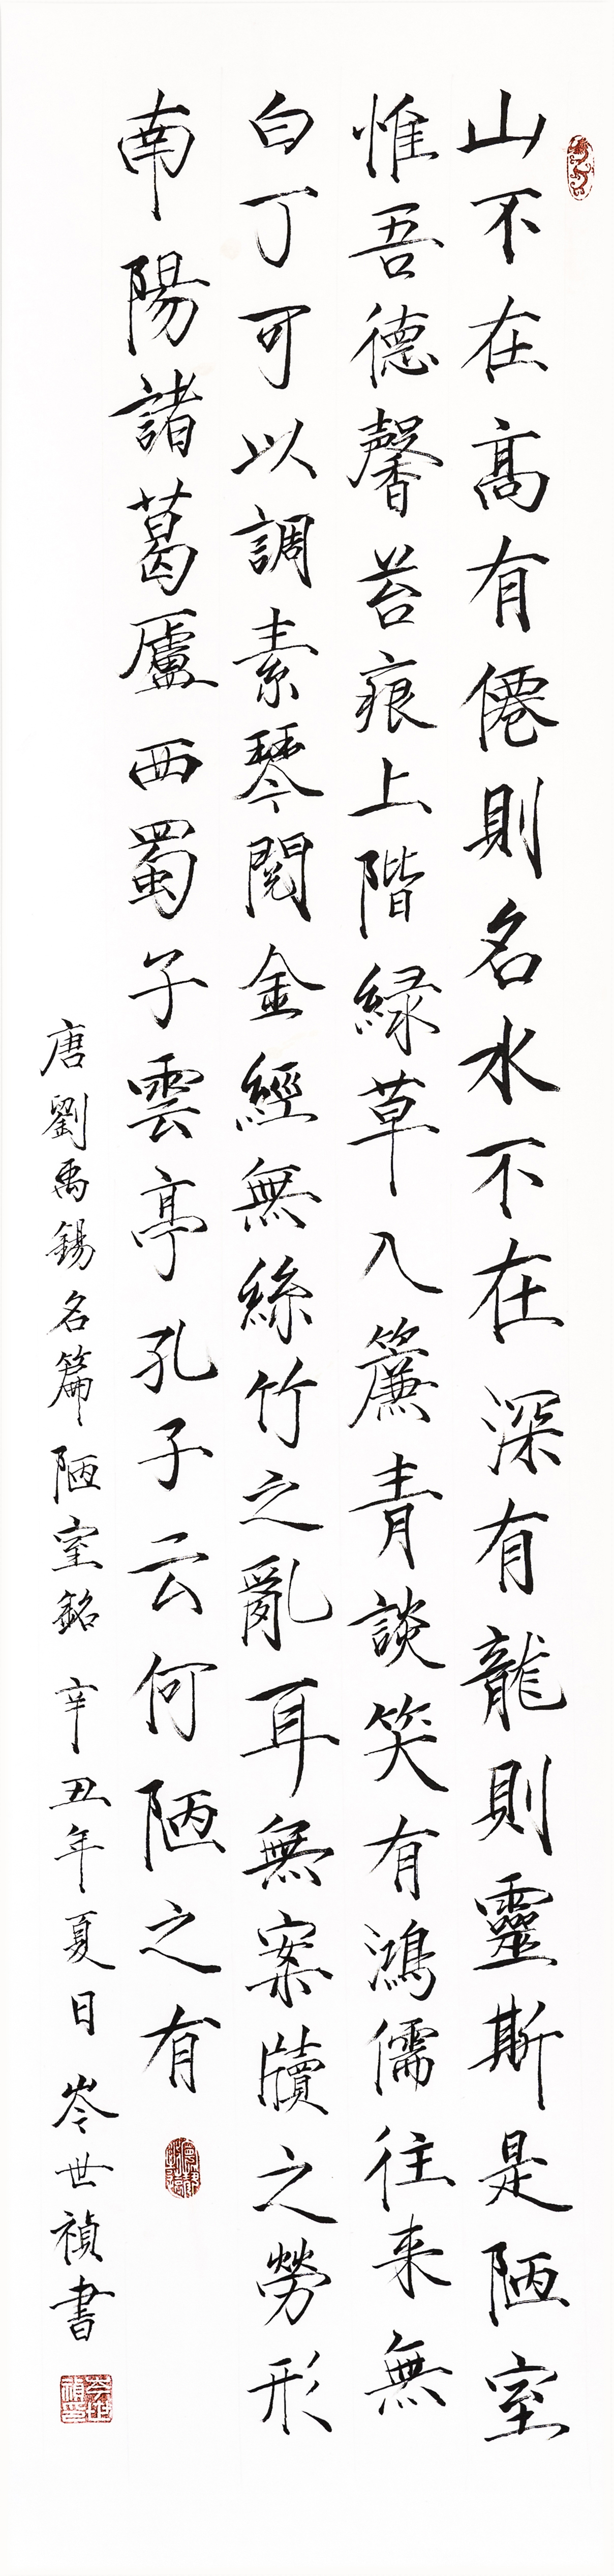 山不在髙有僊則名水不在深有龍則靈斯是陋室
惟吾德馨苔痕上階緑草入簾青談笑有鴻儒往来無
白丁可以調素琴閲金經無絲竹之亂耳無案牘之勞形
南陽諸葛廬西蜀子雲亭孔子云何陋之有
唐劉禹錫名篇陋室銘 辛丑年夏日 岑世禎書